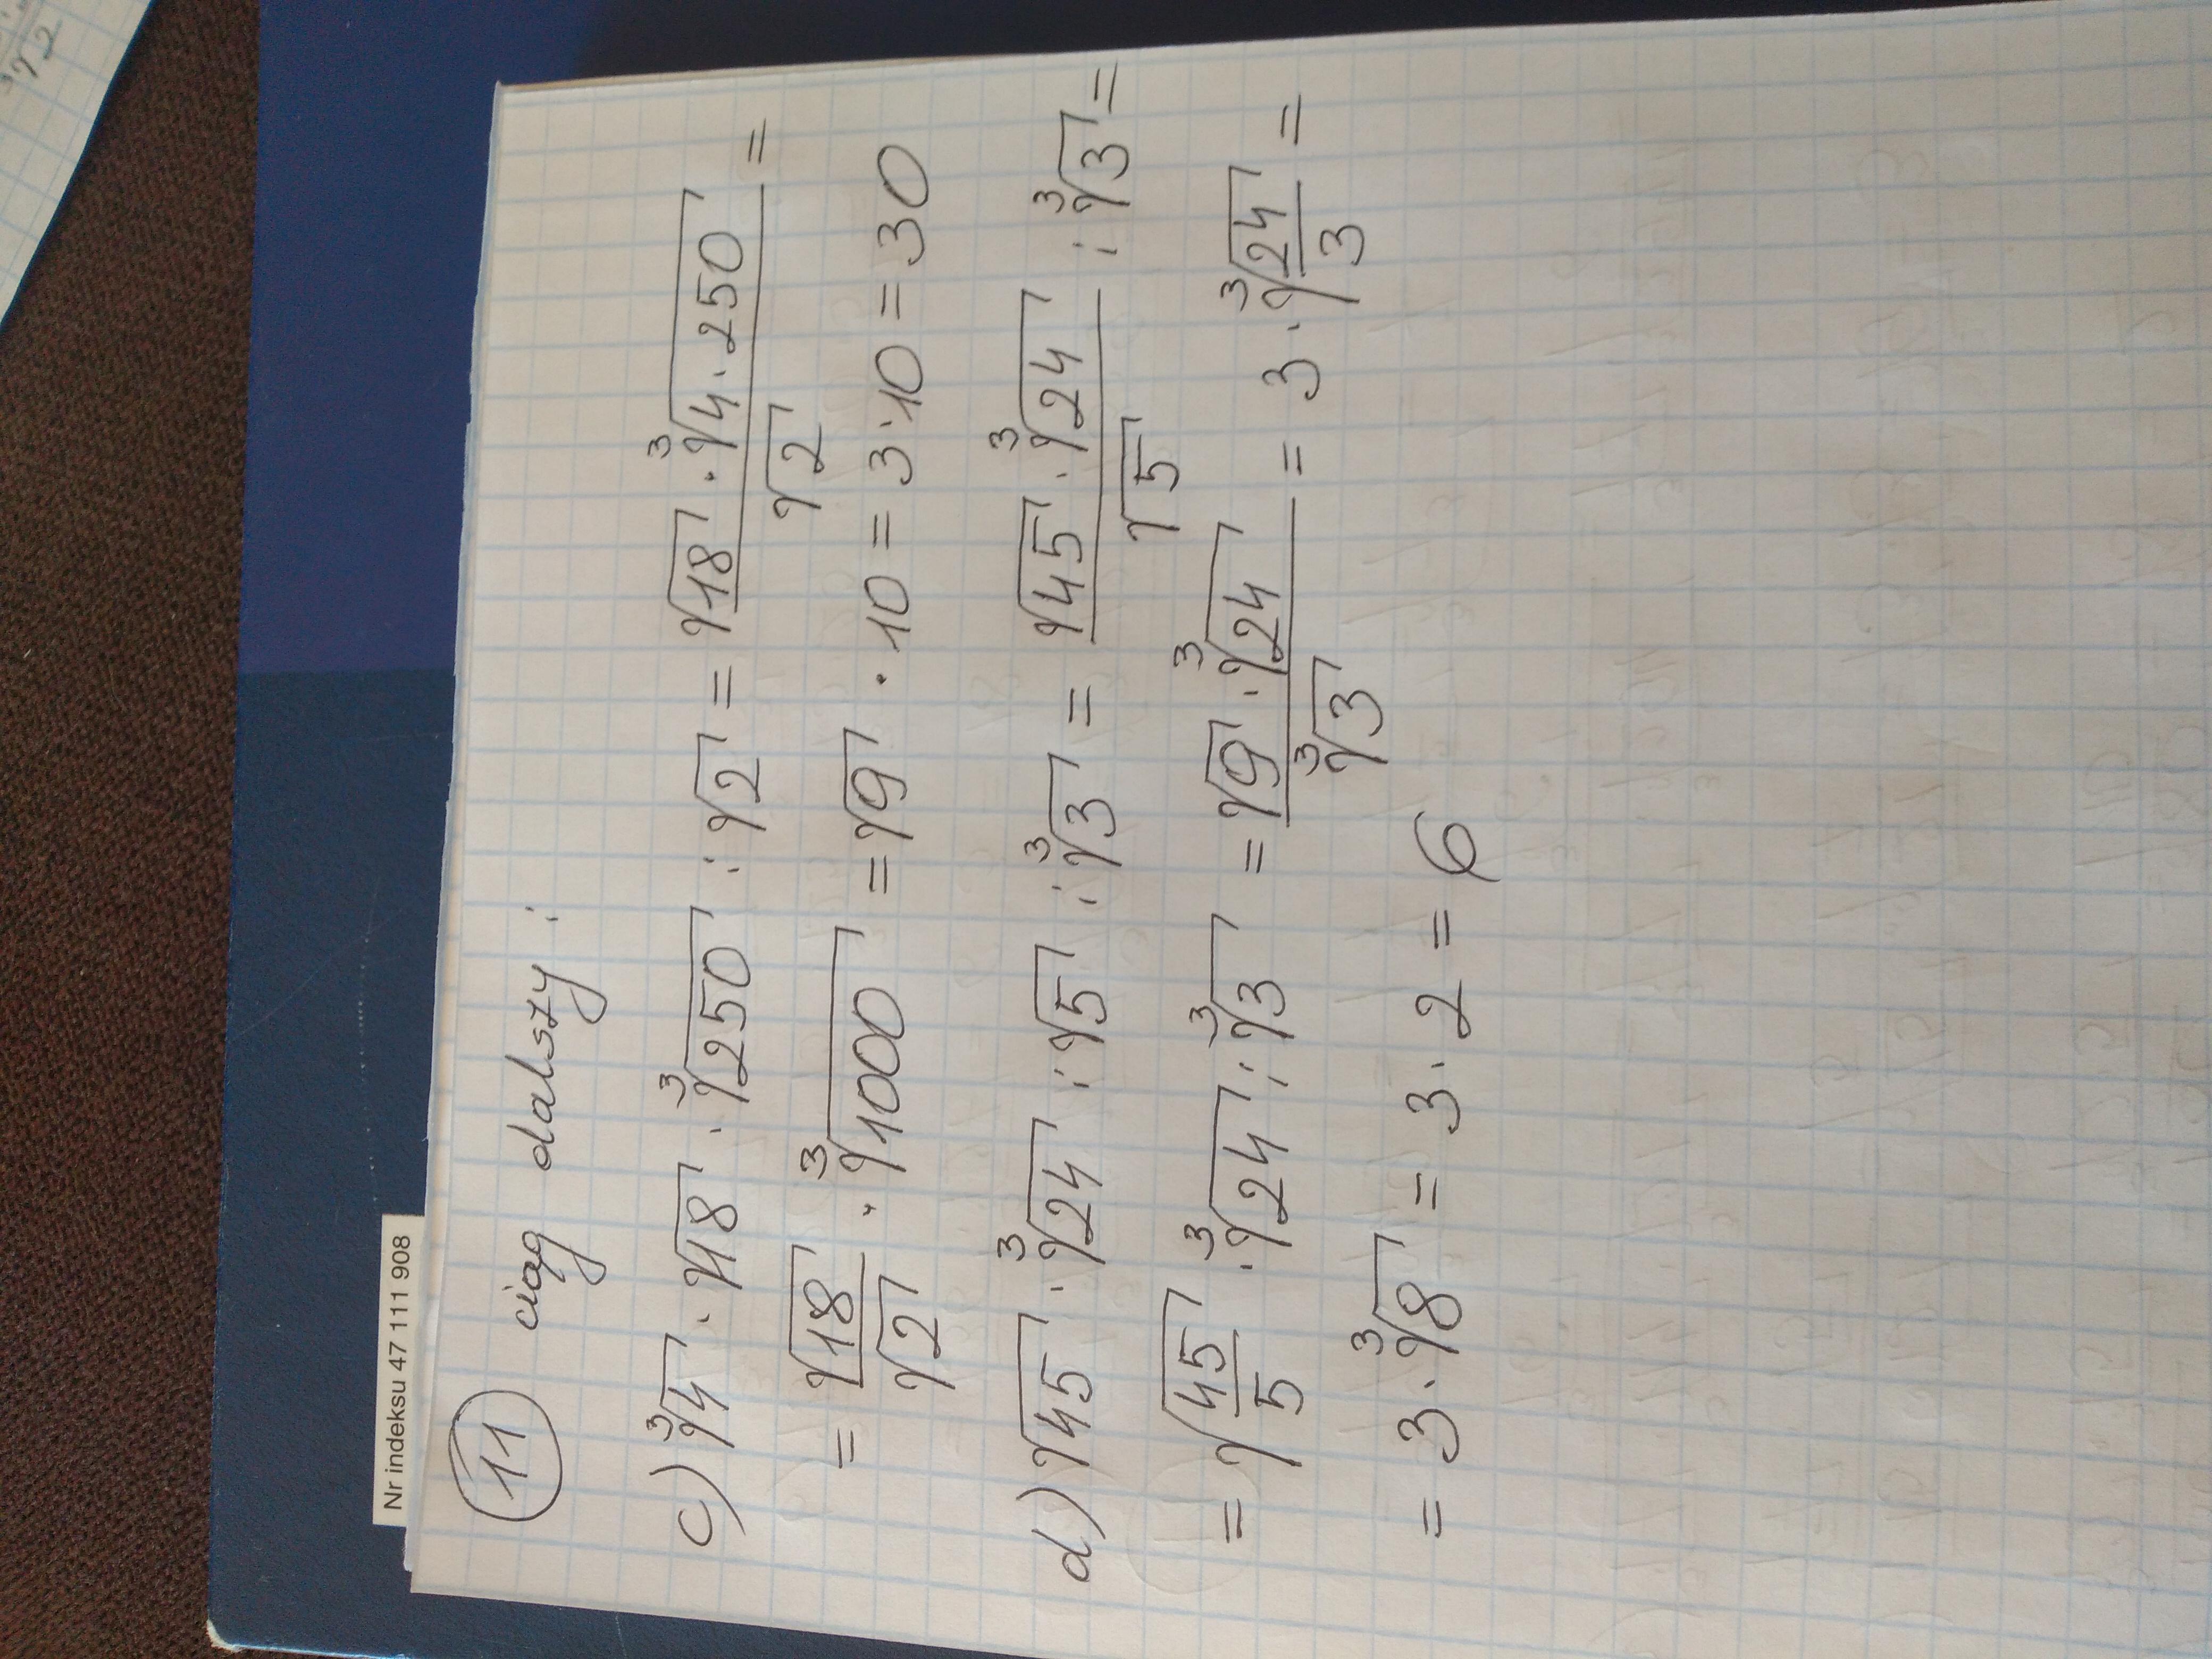 Nr indeksu 47 111 908
11 ciąg dalszy:
c) ∛4 · √18 · ∛250 : √2 = (√18 · ∛(4 · 250))/√2 =
= √18/√2 · ∛1000 = √9 · 10 = 3 · 10 = 30
d) √45 · ∛24 : √5 : ∛3 = (√45 · ∛24)/√5 : ∛3 =
= √(45/5) · ∛24 : ∛3 = (√9 · ∛24)/∛3 = 3 · ∛(24/3) =
= 3 · ∛8 = 3 · 2 = 6